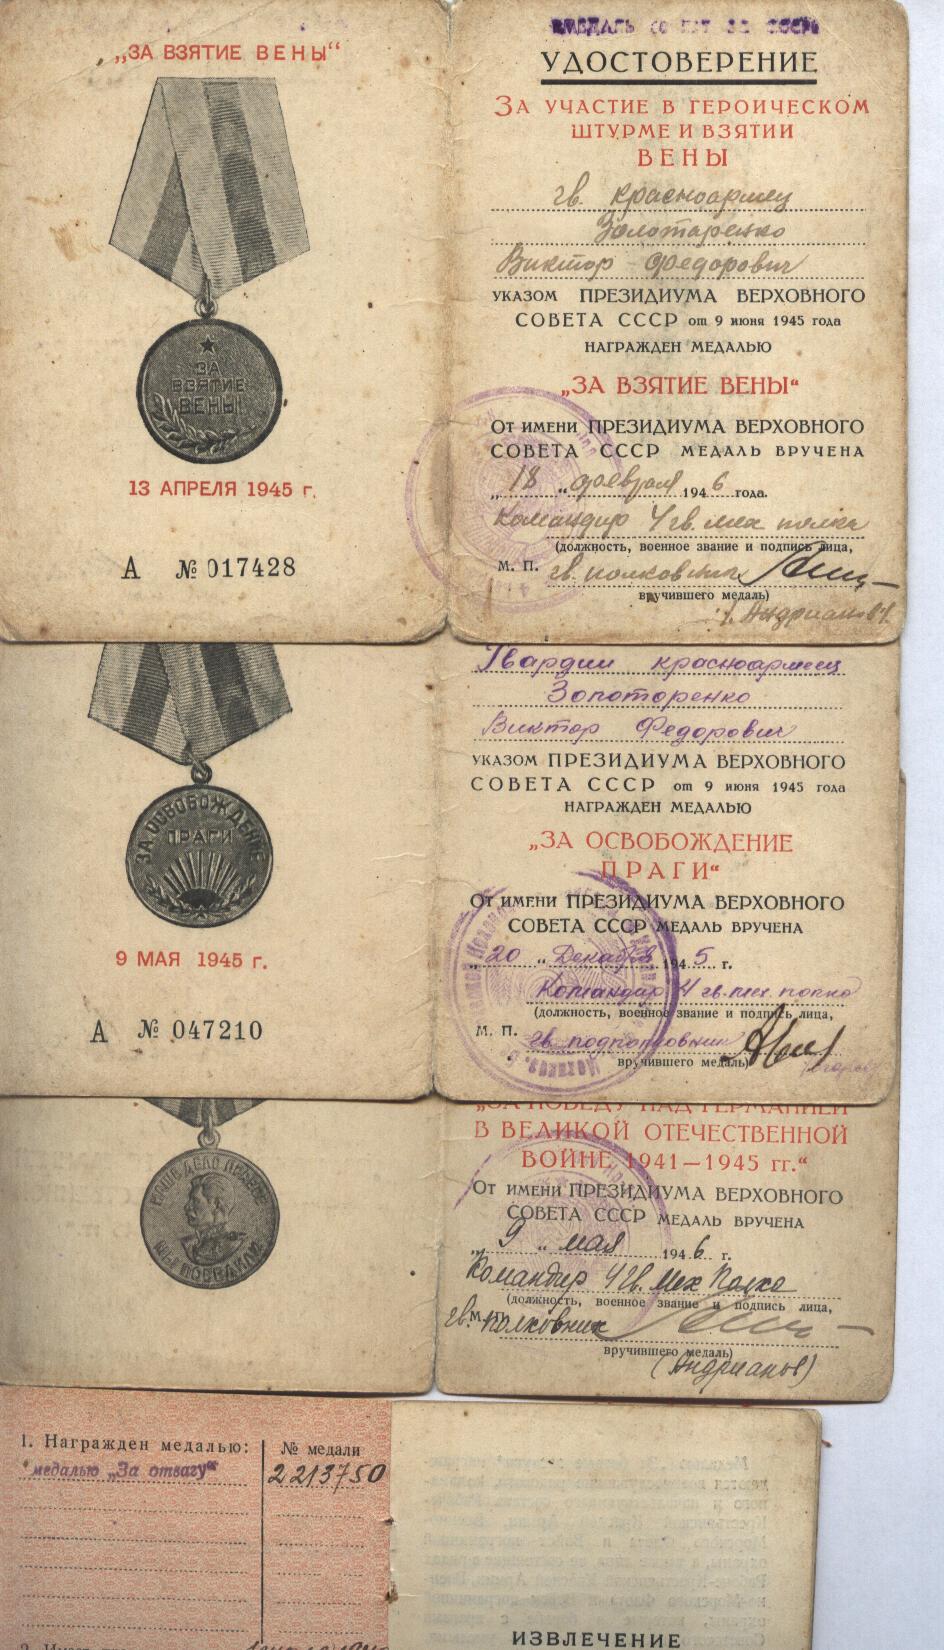 „ЗА ВЗЯТИЕ ВЕНЫ“
ЗА
ВЗЯТИЕ
ВЕНЫ
13 АПРЕЛЯ 1945 г.
А № 017428
УДОСТОВЕРЕНИЕ
ЗА УЧАСТИЕ В ГЕРОИЧЕСКОМ
ШТУРМЕ И ВЗЯТИИ
ВЕНЫ
гв. красноармец
Золотаренко
Виктор Федорович
УКАЗОМ ПРЕЗИДИУМА ВЕРХОВНОГО
СОВЕТА СССР от 9 июня 1945 года
НАГРАЖДЕН МЕДАЛЬЮ
„ЗА ВЗЯТИЕ ВЕНЫ“
ОТ ИМЕНИ ПРЕЗИДИУМА ВЕРХОВНОГО
СОВЕТА СССР МЕДАЛЬ ВРУЧЕНА
„18“ февраля 1946 года.
Командир 4 гв. мех полка
(должность, военное звание и подпись лица,
М. П. гв. полковник
вручившего медаль)
Андрианов
ЗА ОСВОБОЖДЕНИЕ
ПРАГИ
9 МАЯ 1945 г.
А № 047210
Гвардии красноармеец
Золоторенко
Виктор Федорович
УКАЗОМ ПРЕЗИДИУМА ВЕРХОВНОГО
СОВЕТА СССР от 9 июня 1945 года
НАГРАЖДЕН МЕДАЛЬЮ
„ЗА ОСВОБОЖДЕНИЕ
ПРАГИ“
ОТ ИМЕНИ ПРЕЗИДИУМА ВЕРХОВНОГО
СОВЕТА СССР МЕДАЛЬ ВРУЧЕНА
„20“ Декабря 1945 г.
Командир 4 гв. мех. полка
(должность, военное звание и подпись лица,
М. П. гв. подполковник
вручившего медаль)
НАШЕ ДЕЛО ПРАВОЕ
МЫ ПОБЕДИЛИ
„ЗА ПОБЕДУ НАД ГЕРМАНИЕЙ
В ВЕЛИКОЙ ОТЕЧЕСТВЕННОЙ
ВОЙНЕ 1941—1945 гг.“
ОТ ИМЕНИ ПРЕЗИДИУМА ВЕРХОВНОГО
СОВЕТА СССР МЕДАЛЬ ВРУЧЕНА
„9“ мая 1946 г.
Командир 4 гв. Мех Полка
(должность, военное звание и подпись лица,
М. П.
гв. полковник
вручившего медаль)
(Андрианов)
1. Награжден медалью:
№ медали
медалью „За отвагу“
2213750
ИЗВЛЕЧЕНИЕ